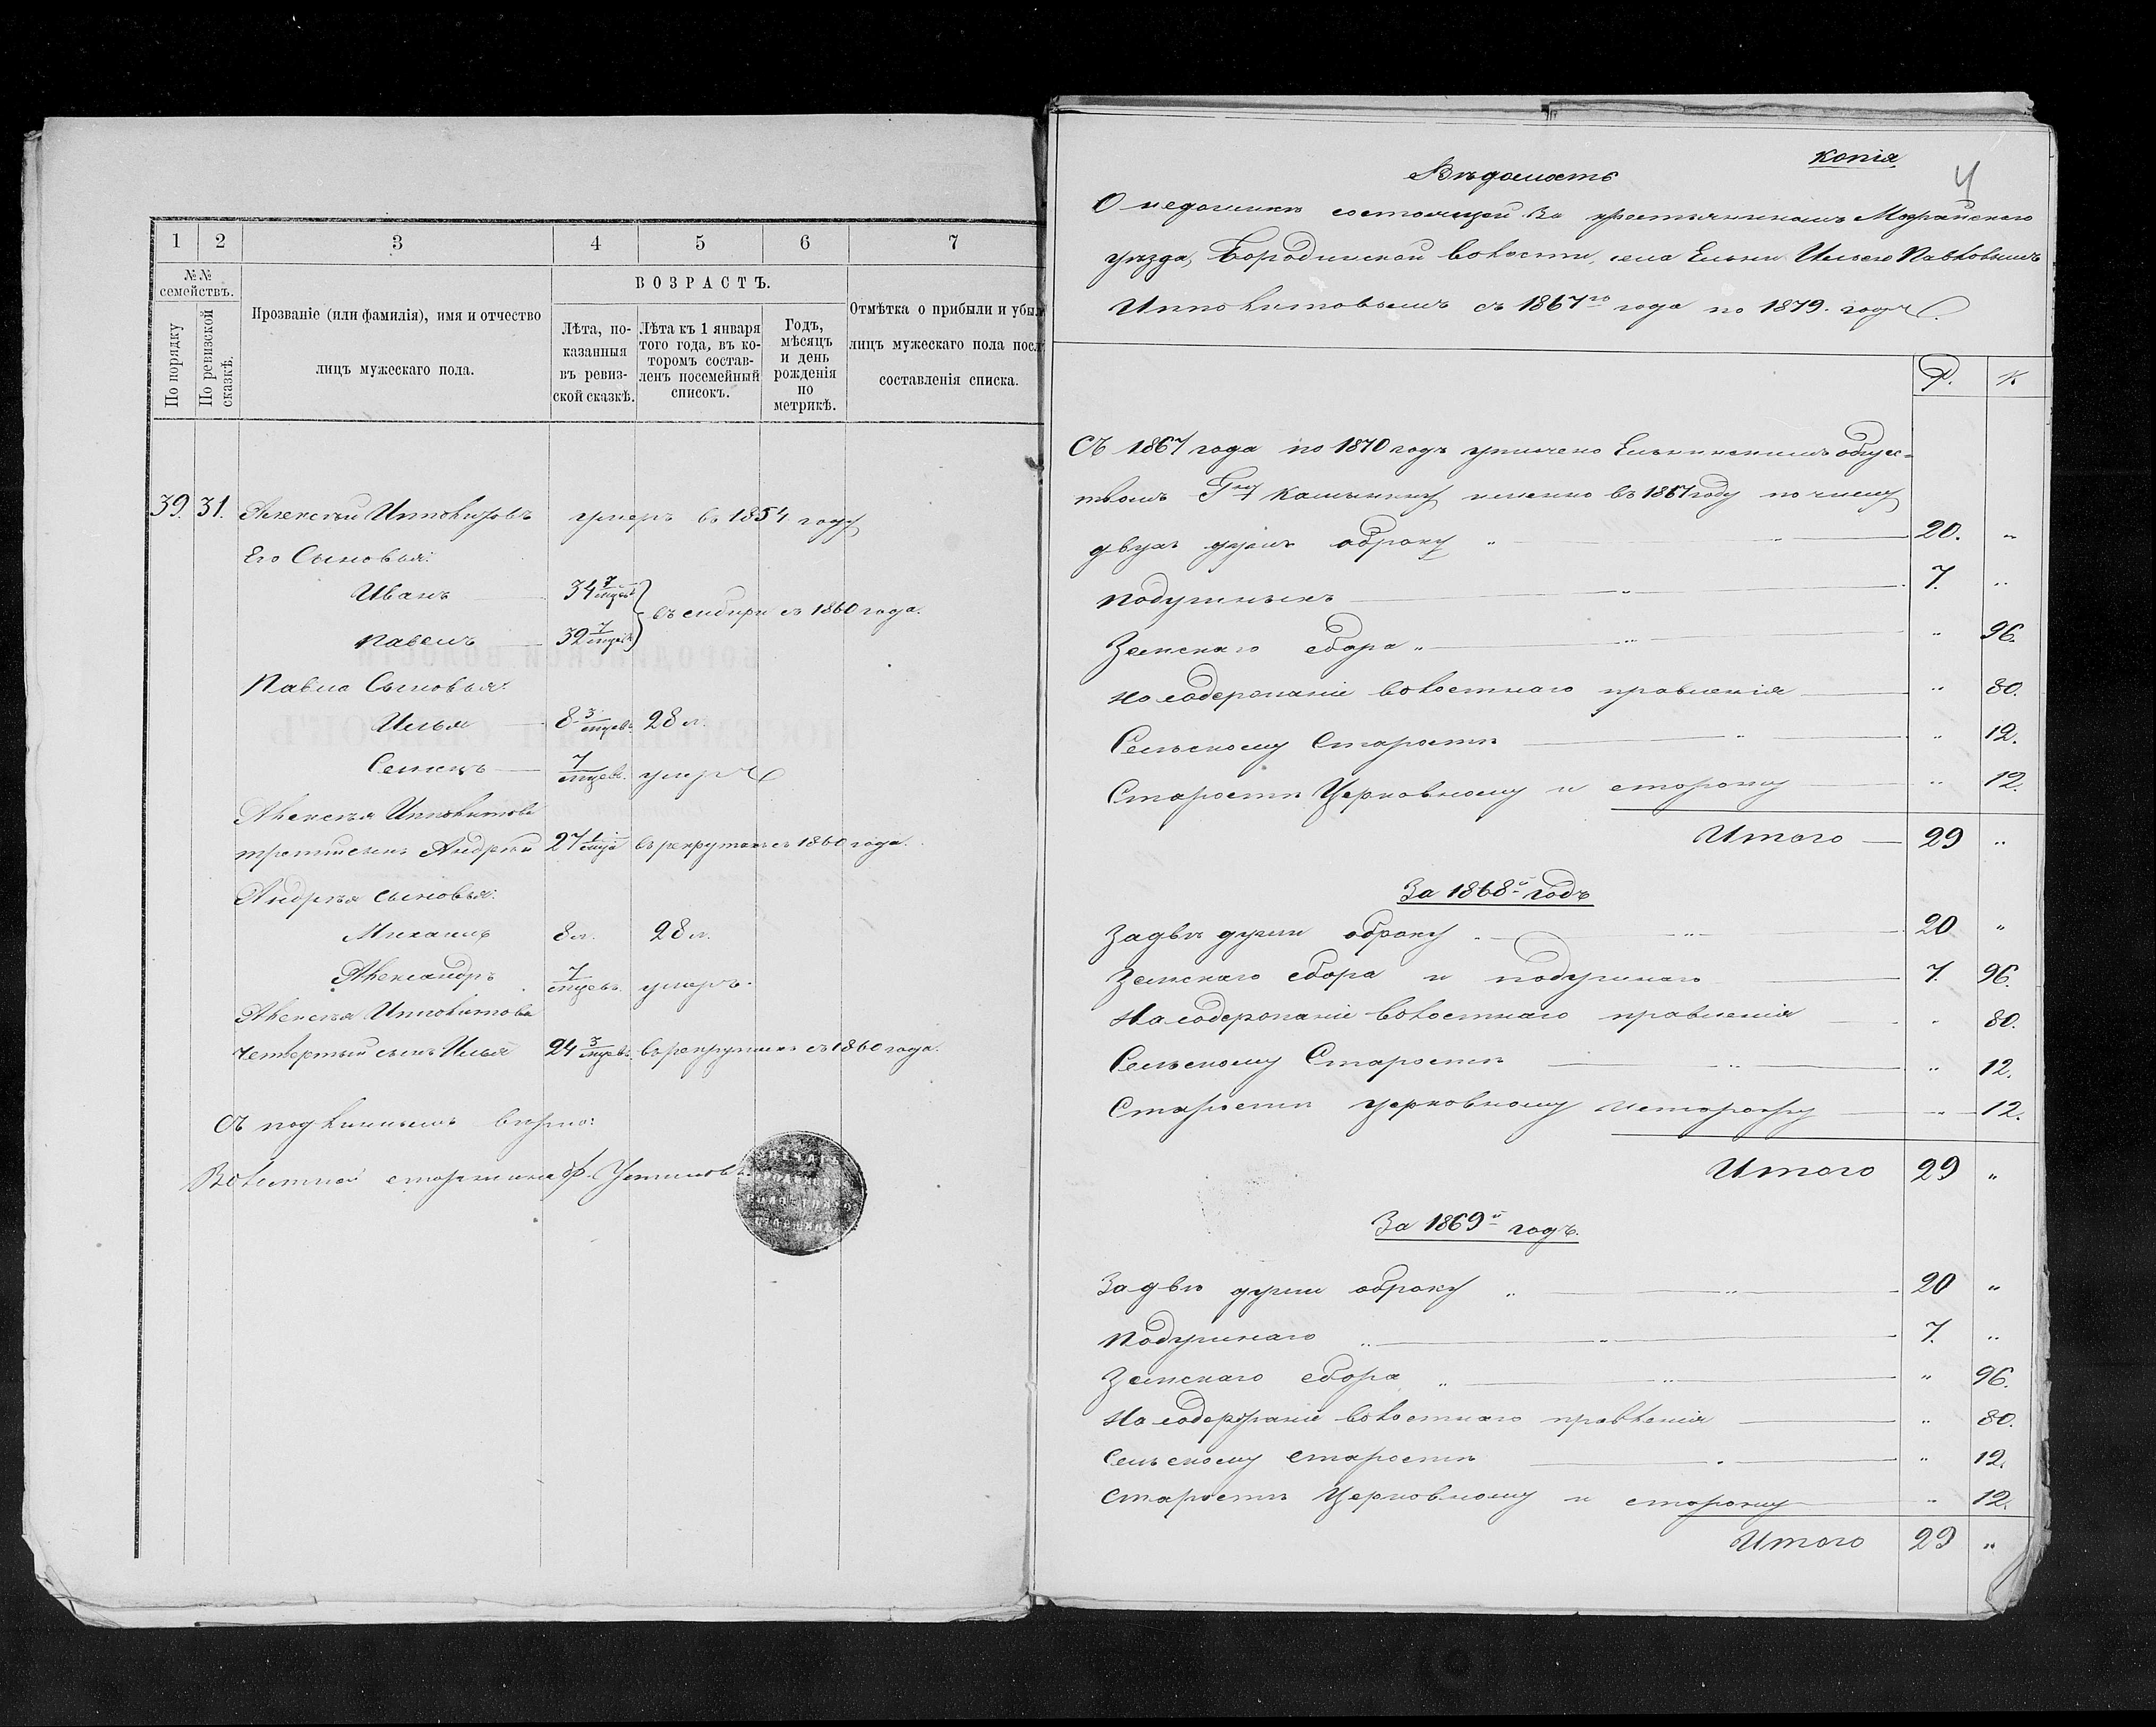 1 2 3 4 5 6 7
№№ семействъ.
По порядку
По ревизской сказкѣ.
Прозваніе (или фамилія), имя и отчество
лицъ мужескаго пола.
ВОЗРАСТЪ.
Лѣта, по-
казанныя
въ ревиз-
ской сказкѣ.
Лѣта къ 1 января
того года, въ ко-
торомъ состав-
ленъ посемейный
списокъ.
Годъ,
мѣсяцъ
и день
рожденія
по
метрикѣ.
Отмѣтка о прибыли и убыли
лицъ мужескаго пола посл
составленія списка.
39. 31. Алексѣй Ипполитовъ умеръ въ 1854 году
Его Сыновья:
Иванъ 34 7/мцевъ
въ сибири съ 1860 года.
Павелъ 32 7/мцевъ
Павла Сыновья:
Илья 8 3/мцевъ. 28 л.
Семенъ 7/мцевъ. умеръ
Алексѣя Ипполитова
третій сынъ Андрей 27 1/мца въ рекрутахъ съ 1860 года.
Андрея сыновья:
Михаилъ 8 л. 28 л.
Александръ 7/мцевъ умеръ.
Алексѣя Ипполитова
четвертый сынъ Илья 24 3/мцевъ. въ рекрутахъ съ 1860 года.
Съ подлиннымъ вѣрно:
Волостной старшина Ф. Устиновъ
копія
4
Вѣдомость
О недоимкѣ состоящей за крестьяниномъ Можайскаго
уѣзда, Бородинской волости, села Ельни Ильею Павловымъ
Ипполитовымъ съ 1867го года по 1879. годъ.
Р. К
Съ 1867 года по 1870 годъ уплочено Ельнинскимъ общес-
твомъ Гну именно въ 1867 году по числу
двухъ душъ оброку 20. "
Подушныхъ 7. "
Земскаго сбора " 96.
На содержаніе волостнаго правленія " 80.
Сельскому Старостѣ " 12.
Старостѣ Церковному и сторожу " 12.
Итого 29 "
За 1868й годъ
За двѣ души оброку 20 "
Земскаго сбора и подушнаго 7. 96.
На содержаніе волостнаго правленія " 80.
Сельскому Старостѣ " 12.
Старостѣ церковному и сторожу " 12.
Итого 29 "
За 1869й годъ.
За двѣ души оброку 20 "
Подушнаго 7. "
Земскаго сбора " 96.
На содержаніе волостнаго правленія " 80.
Сельскому старостѣ " 12.
Старостѣ Церковному и сторожу " 12.
Итого 29 "